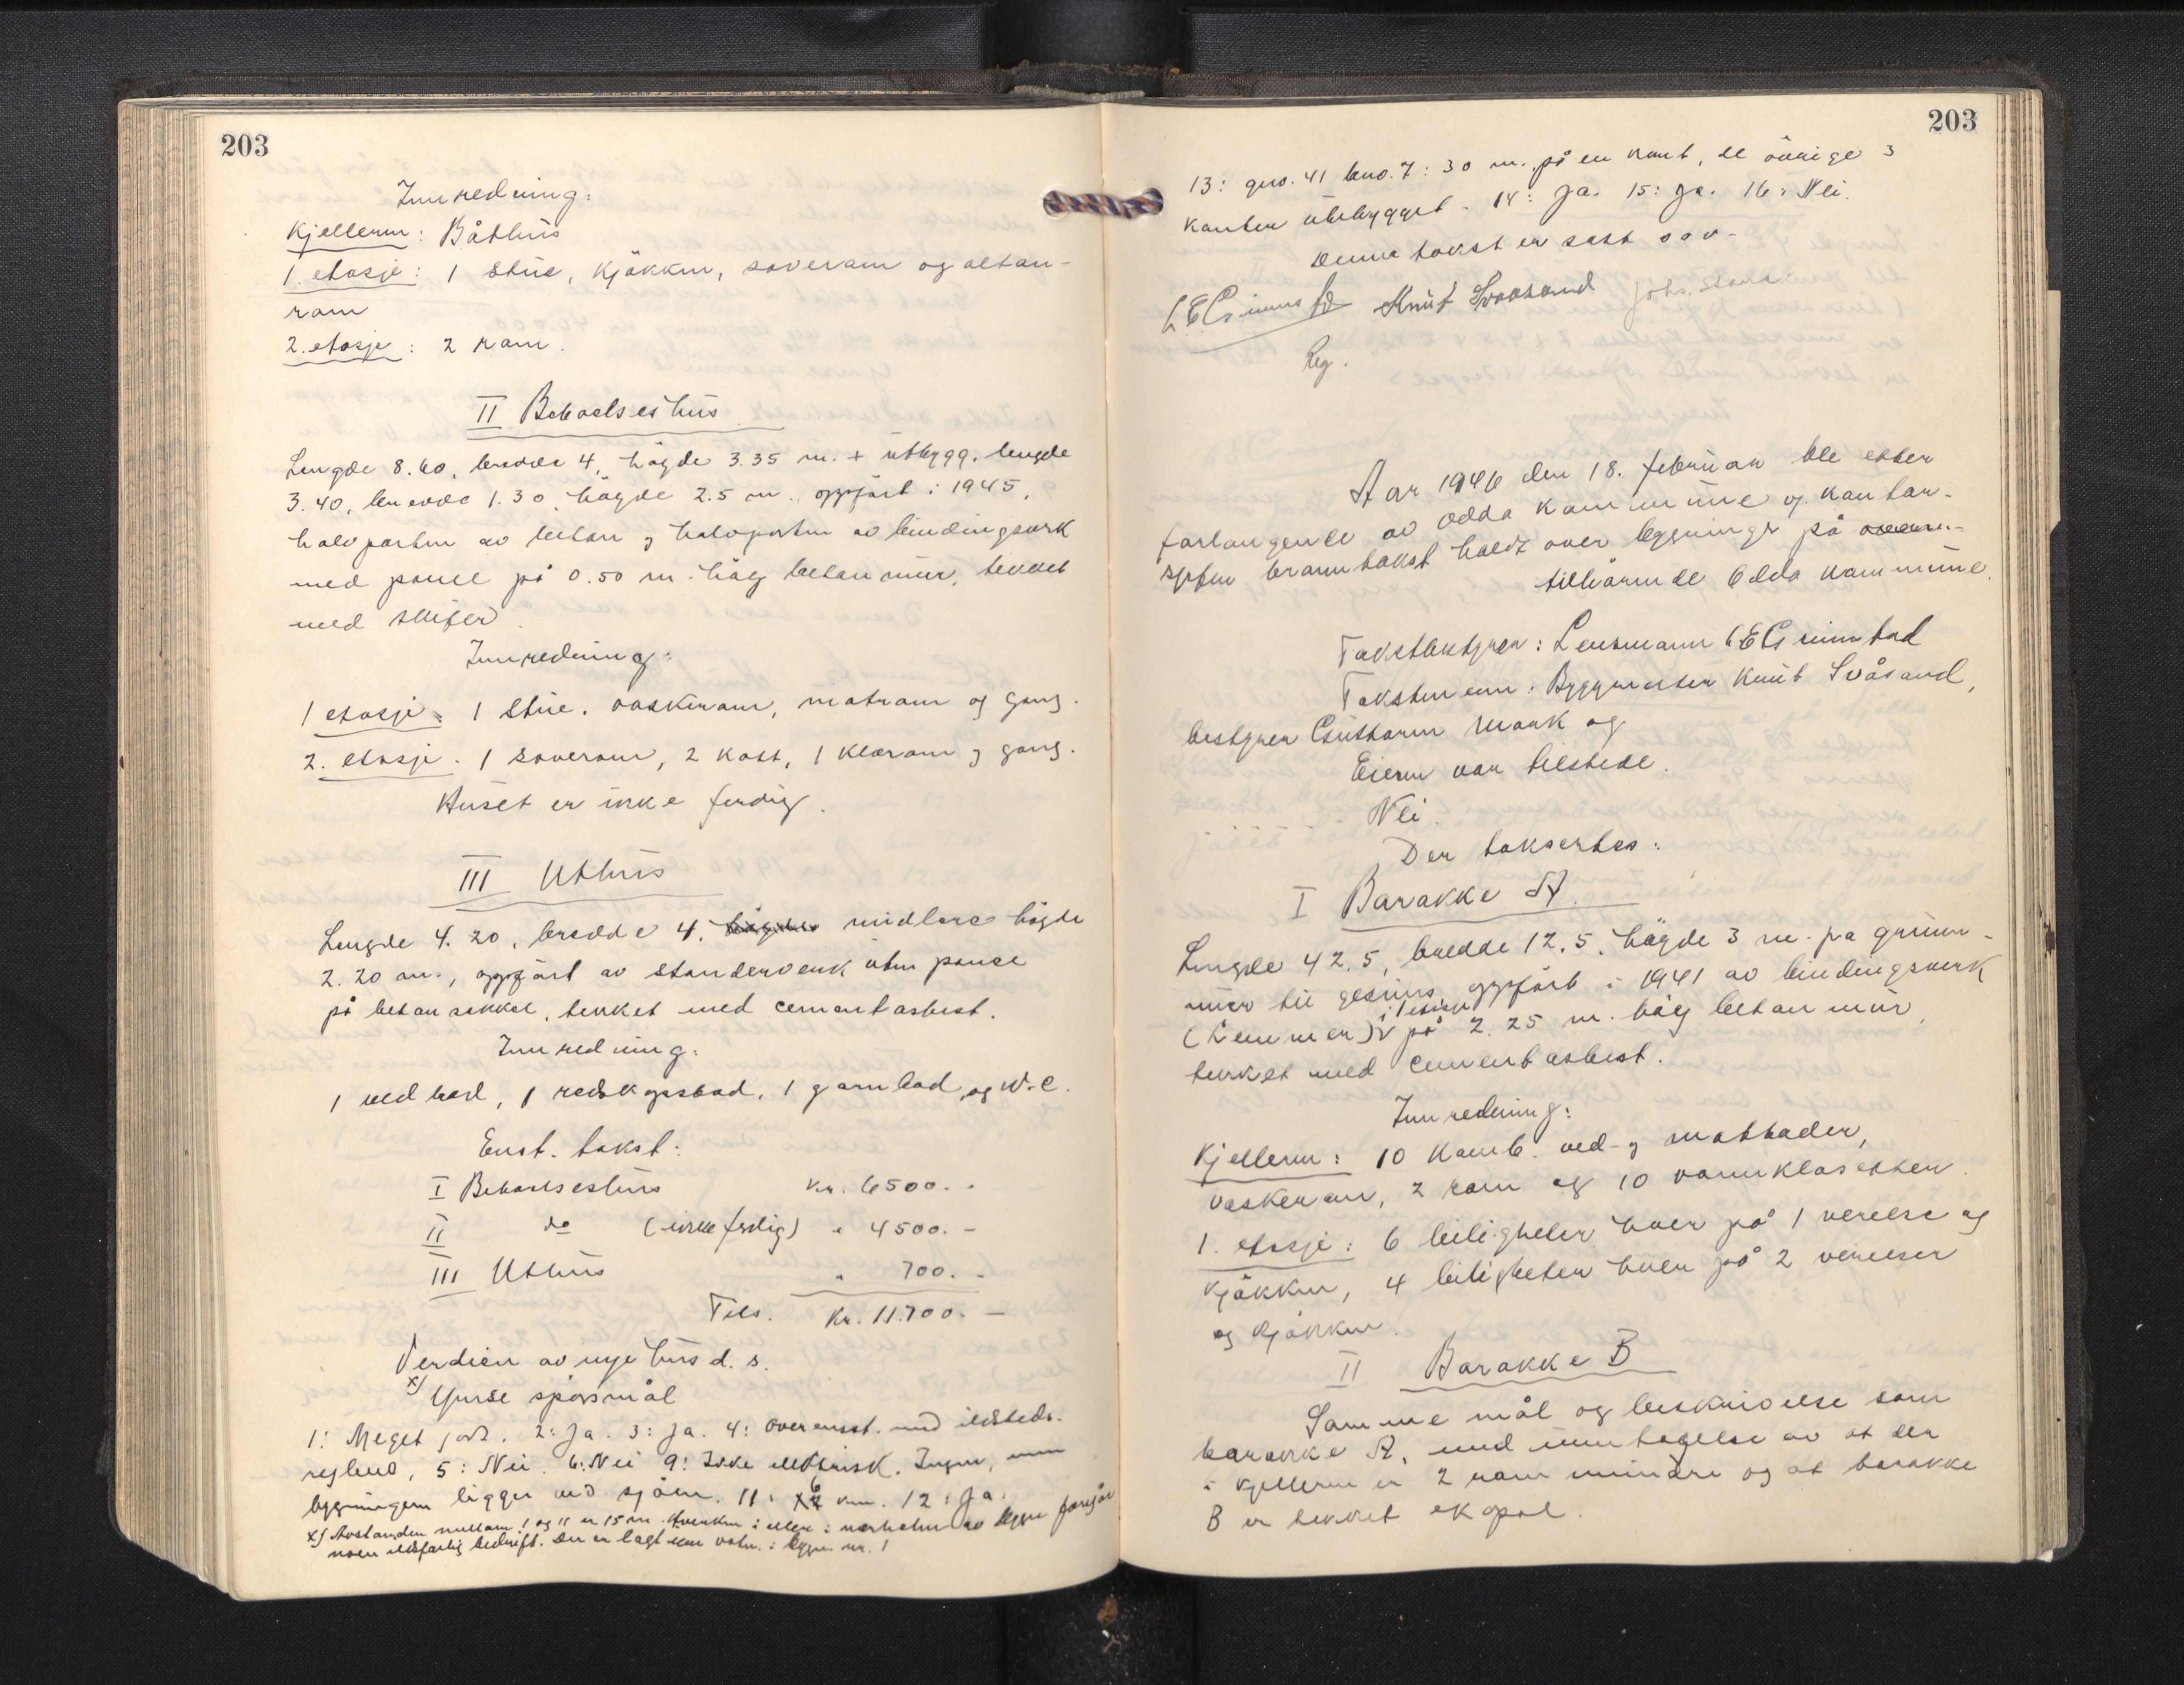 203
Innredning:
Kjelleren: Båthus
1. etasje: 1 stue, kjökken, soverom og altan-
rom
2. etasje: 2 rom.
II Beboelseshus
Lengde 8.60, bredde 4, högde 3.35 m. + utbygg, lengde
3.40, bredde 1.30, högde 2.5 m., oppfört i 1945,
halvparten av betong og halvparten av bindingsverk
med panel på 0.50 m. höy betonmur, tekket
med skifer.
Innredning:
1 etasje: 1 stue, vaskerom, matrom og gang.
2. etasje. 1 soverom, 2 kott, 1 klærom og gang.
Huset er ikke ferdig.
III Uthus
Lengde 4.20, bredde 4, högde midlere högde
2.20 m., oppfört av standerverk uten panel
på betonsokkel, tekket med cementasbest.
Innredning:
1 vedbod, 1 redskapsbod, 1 garnbod og W.C.
Enst. takst:
I Beboelseshus kr. 6500.-
II do (ikke ferdig) " 4500.-
III Uthus " 700.-
Tils. kr. 11.700.-
Verdien av nye hus d. s.
x) Ymse spörsmål
1: Meget god. 2: Ja. 3: Ja. 4: Overensst. med ildsteds-
reglene, 5: Nei. 6: Nei 9: Ikke elektrisk. Ingen, men
bygningen ligger ved sjöen. 11: 6 km. 12: Ja.
x) Avstanden mellom I og II er 15 m. Hverken i eller i nærheten av bygn. foregår
noen ildsfarlig bedrift. Der er lagt inn vatn i bygn. nr. I
203
13: gno. 41 bno. 7: 30 m. på en kant, de övrige 3
kanter ubebygget. 14: Ja. 15: Ja. 16: Nei.
Denne takst er satt o s v.-
L E Grimstad Knut Svaasand Johs.
Reg.
Aar 1946 den 18. februar ble etter
forlangende av Odda kommune og kontor-
sjefen branntakst holdt over bygninger på
tilhörende Odda kommune.
Takstbestyrer: Lensmann L E Grimstad
Takstmenn: Byggmester Knut Svåsand,
bestyrer Guttorm Mark og
Eieren var tilstede.
Nei.
Der taksertes:
I Barakke A.
Lengde 42.5, bredde 12.5, högde 3 m. på grunn-
mur til gesims, oppfört i 1941 av bindingsverk
(lemmer) i 1 etasje på 2.25 m. höy betonmur,
tekket med cementasbest.
Innredning:
Kjelleren: 10 komb. ved- og matboder,
vaskerom, 2 rom og 10 vannklosetter.
1. etasje: 6 leiligheter hver på 1 værelse og
kjökken, 4 leiligheter hver på 2 værelser
og kjökken.
II Barakke B
Samme mål og beskrivelse som
barakke A, med unntagelse av at der
i kjelleren er 2 rom mindre og at barakke
B er tekket ekopal.